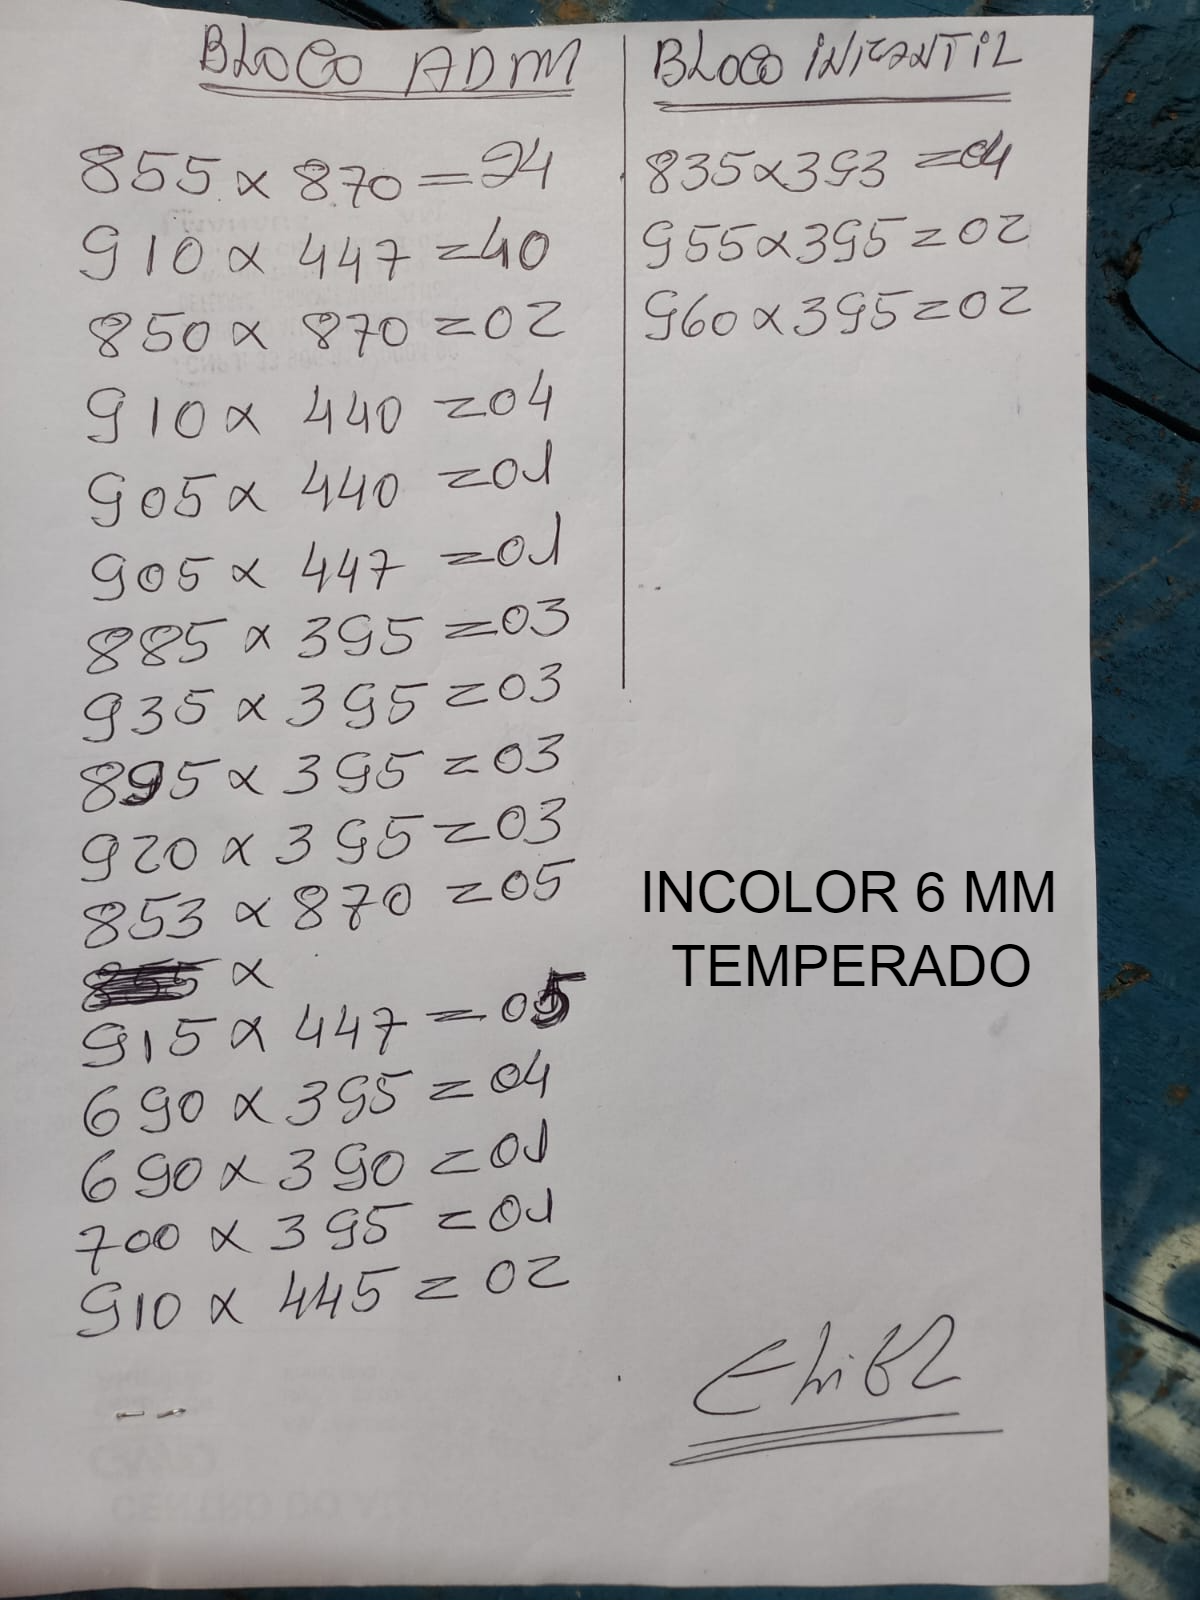 BLOCO ADM
855 x 870 = 24
910 x 447 = 40
850 x 870 = 02
910 x 440 = 04
905 x 440 = 01
905 x 447 = 01
885 x 395 = 03
935 x 395 = 03
895 x 395 = 03
920 x 395 = 03
853 x 870 = 05
x
915 x 447 = 05
690 x 395 = 04
690 x 390 = 01
700 x 395 = 01
910 x 445 = 02
BLOCO INFANTIL
835 x 393 = 04
955 x 395 = 02
960 x 395 = 02
INCOLOR 6 MM
TEMPERADO